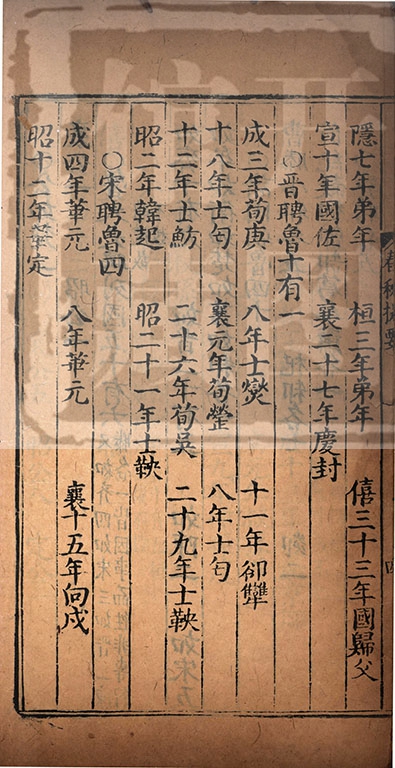 春秋提要 四
隱七年弟年 桓三年弟年 僖三十三年國歸父
宣十年國佐 襄二十七年慶封
○晉聘魯十有一
成三年荀庚 八年士燮 十一年卻犨
十八年士匄 襄元年荀罃 八年士匄
十二年士魴 二十六年荀吳 二十九年士鞅
昭二年韓起 昭二十一年士鞅
○宋聘魯四
成四年華元 八年華元 襄十五年向戌
昭十二年華定